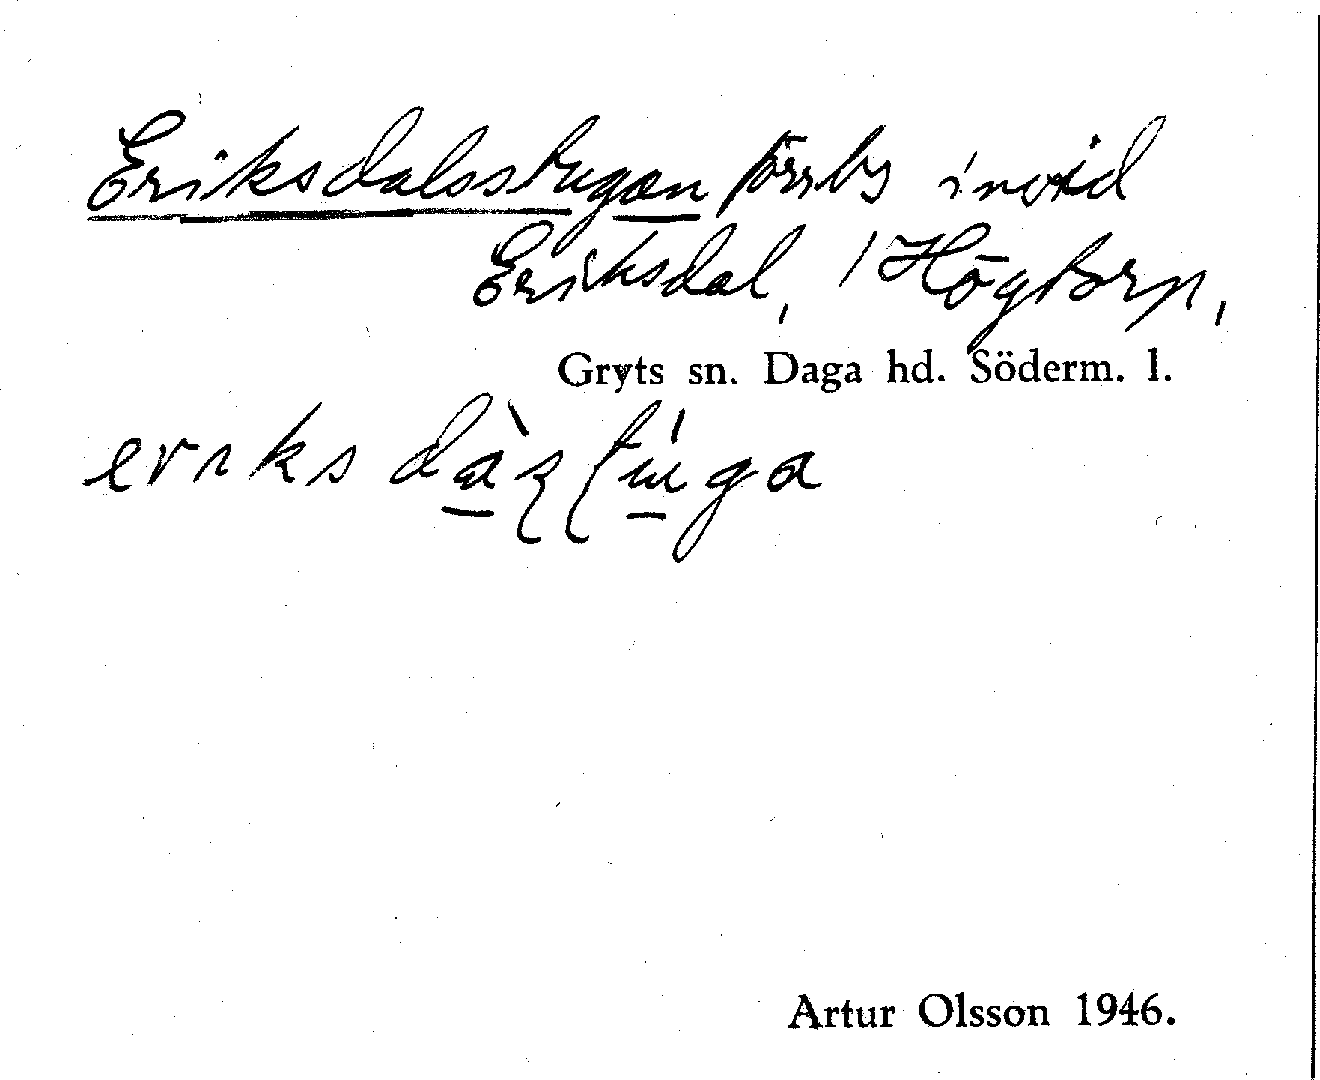 Eriksdalsstugan förr bs invid
Eriksdal, / Högtorp,
Gryts sn. Daga hd. Söderm. l.
Artur Olsson 1946.